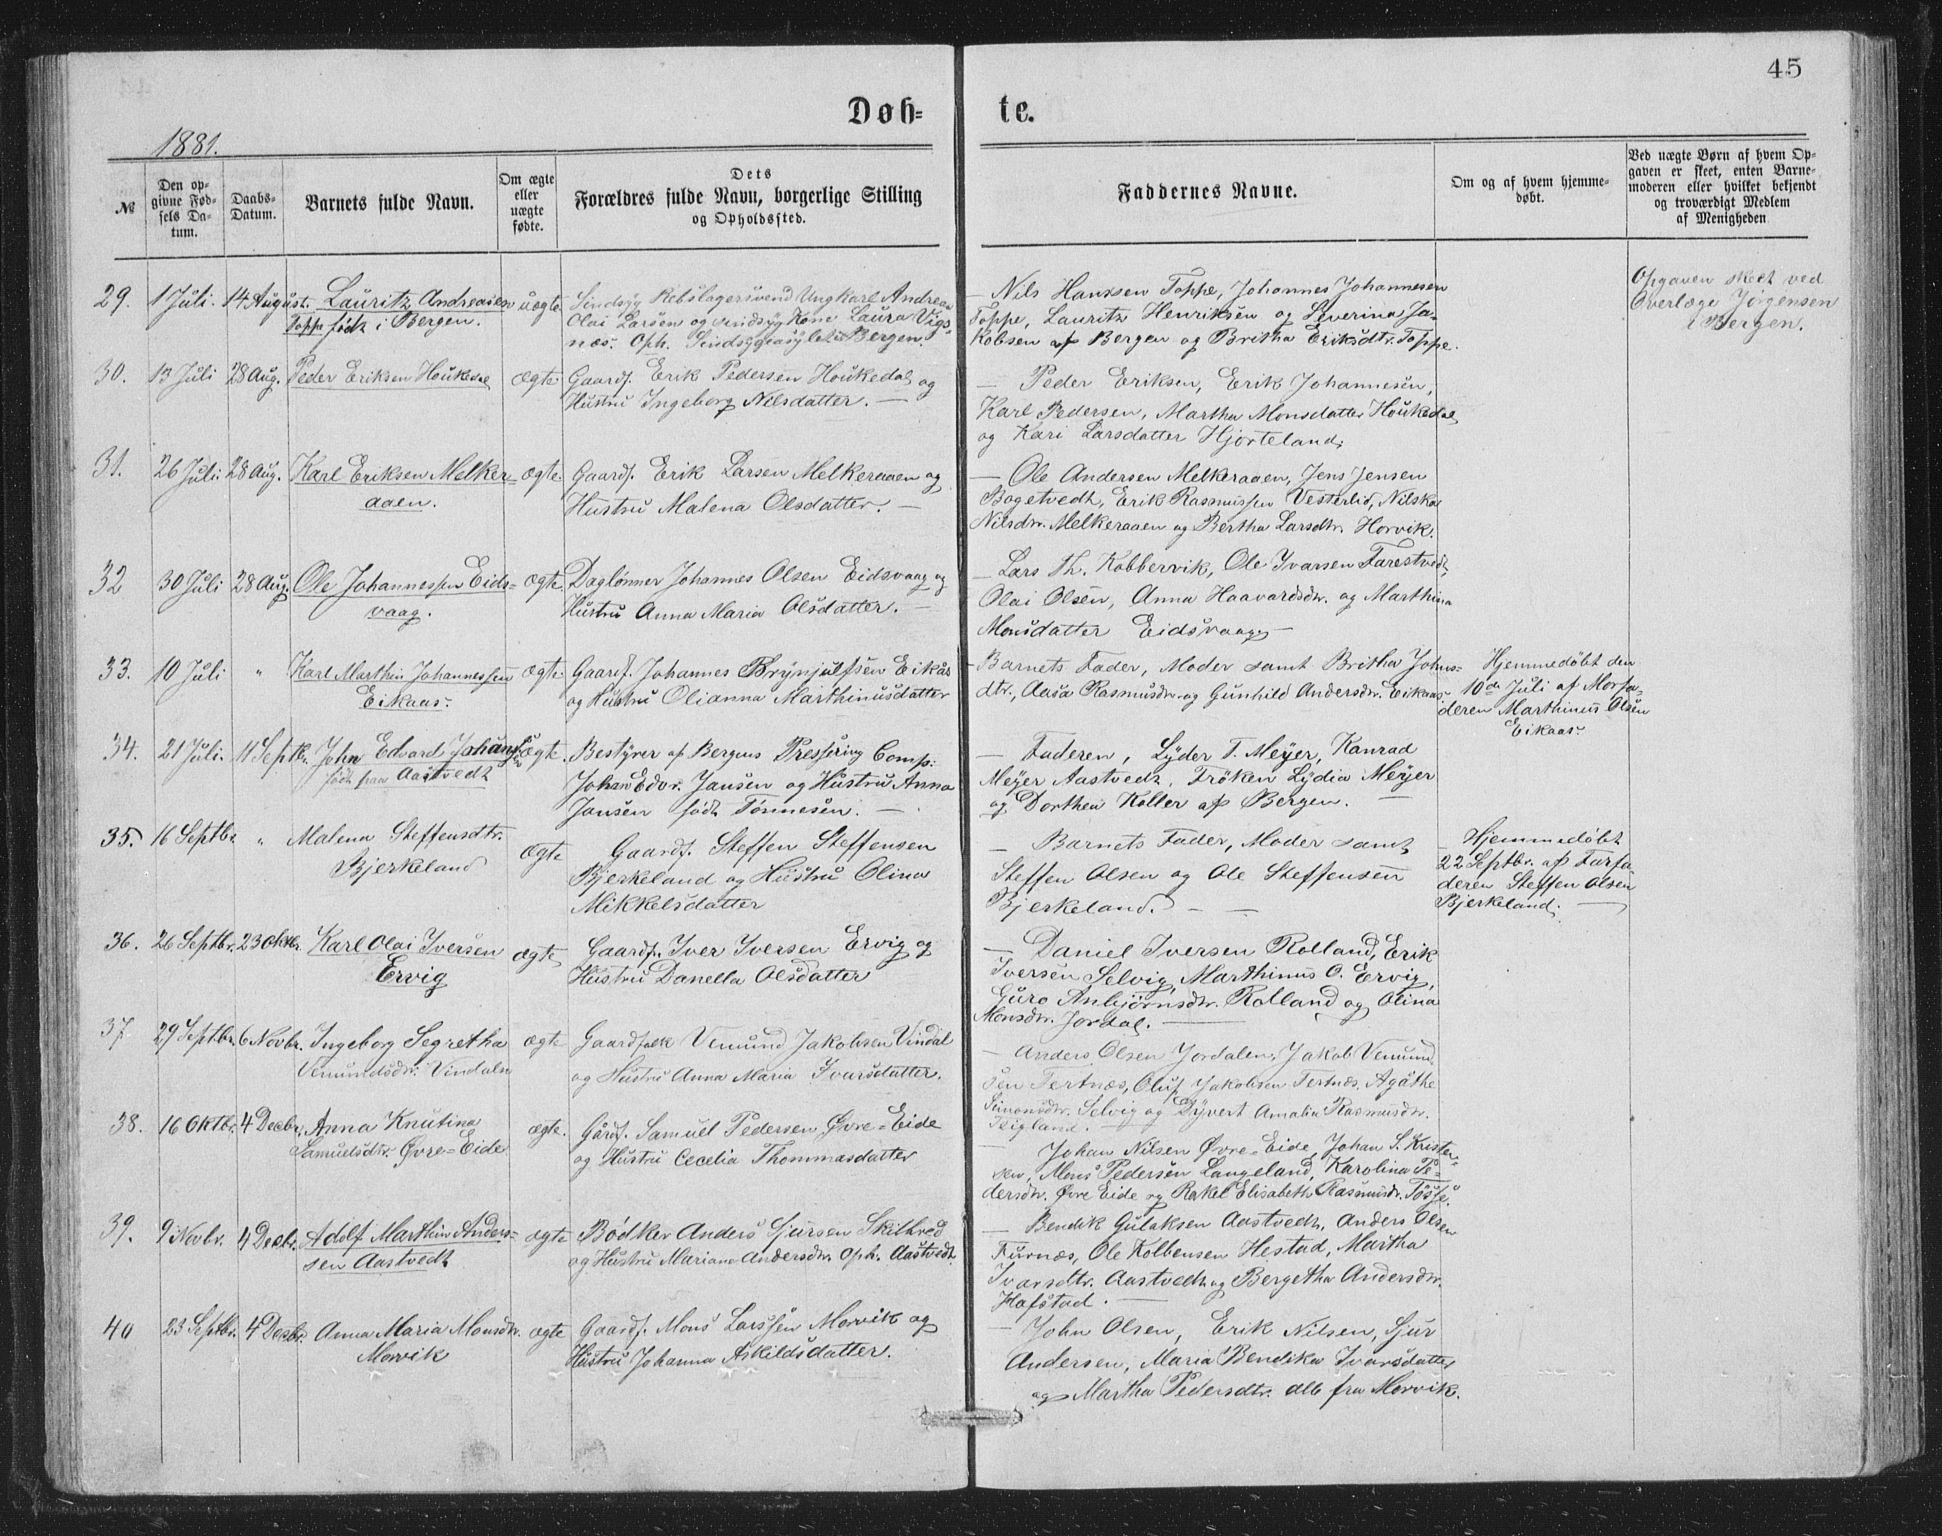 45
Døb-
te.
1881.
№
Den op-
givne Fød-
sels Da-
tum.
Daabs-
Datum.
Barnets fulde Navn.
Om ægte
eller
uægte
fødte.
Dets
Forældres fulde Navn, borgerlige Stilling
og Opholdssted.
Faddernes Navne.
Om og af hvem hjemme-
døbt.
Ved uægte Børn af hvem Op-
gaven er skeet, enten Barne-
moderen eller hvilket bekjendt
og troværdigt Medlem
af Menigheden
29. 1 Juli. 14 August. Lauritz Andreasen uægte
Toppe født i Bergen.
Sindsyg Rebslagersvend Ungkarl Andreas
Olai Larsen og sindsyg Kone Laura Vigs-
næs. Oph. Sindsygeasylet i Bergen.
— Nils Hansen Toppe, Johannes Johannesen
Toppe, Lauritz Henriksen og Severina Ja-
kobsen af Bergen og Britha Eriksdtr. Toppe.
Opgaven skeet ved
Overlæge Jørgensen
i Bergen.
30. 13 Juli 28 Aug. Peder Eriksen Houkedal ægte Gaardf. Erik Pedersen Houkedal og
Hustru Ingeborg Nilsdatter. —
— Peder Eriksen, Erik Johannesen,
Karl Pedersen, Martha Monsdatter Houkedal
og Kari Larsdatter Hjorteland.
31. 26 Juli. 28 Aug. Karl Eriksen Melker- ægte. Gaardf. Erik Larsen Melkeraaen og
aaen.
Hustru Malena Olsdatter. —
— Ole Andersen Melkeraaen, Jens Jensen
Bogetvedt, Erik Rasmussen Vesterlid, Nilska
Nilsdtr. Melkeraaen og Bertha Larsdtr. Horvik.
32 30 Juli 28 Aug. Ole Johannessen Eids- ægte. Daglønner Johannes Olsen Eidsvaag og
vaag.
Hustru Anna Maria Olsdatter. —
— Lars Th. Kobbervik, Ole Ivarsen Farestvedt,
Olai Olsen, Anna Haavardsdtr. og Marthina
Monsdatter Eidsvaag —
33. 10 Juli " Karl Martin Johannessen ægte. Gaardf. Johannes Brynjulfsen Eikaas
Eikaas.
og Hustru Olianna Marthinusdatter
— Barnets Fader, Moder samt Britha Johns-
dtr., Aasa Rasmusdtr. og Gunhild Andersdtr. Eikaas.
Hjemmedøbt den
10de Juli af Morfa-
deren Marthinus Olsen
Eikaas.
34. 21 Juli. 11 Septbr. John Edvard Johansen ægte. Bestyrer af Bergens Pressfring Comp:
født paa Aastvedt
Johan Edv. Jansen og Hustru Anna
Jansen født Tønnesen. —
— Faderen, Lyder T. Meyer, Kanrad
Meyer Aastvedt, Frøken Lydia Meyer
og Dorthea Koller af Bergen. —
35. 16 Septbr. " Malena Steffensdtr. ægte Gaardf. Steffen Steffensen
Bjerkeland
Bjerkeland og Hustru Olina
Mikkelsdatter
— Barnets Fader, Moder samt
Steffen Olsen og Ole Steffensen
Bjerkeland. — —
Hjemmedøbt
22 Septbr. af Farfa-
deren Steffen Olsen
Bjerkeland. —
36. 26 Septbr. 23 Oktbr. Karl Olai Iversen ægte Gaardf. Iver Iversen Ervig og
Ervig
Hustru Danella Olsdatter
— Daniel Iversen Rolland, Erik
Iversen Selvig, Marthinus O. Ervig,
Guro Anbjørnsdtr. Rolland og Olina
Monsdtr. Jordal. —
37. 29 Septbr. 6 Novbr. Ingeborg Segretha ægte Gaardfolk Vemund Jakobsen Vindal
Vemundsdtr. Vindaln
og Hustru Anna Maria Ivarsdatter.
— Anders Olsen Jordalen, Jakob Vemund-
sen Tertnæs, Oluf Jakobsen Tertnæs, Agathe
Simonsdtr. Selvig og Dyvert Amalia Rasmusdtr.
38. 16 Oktbr. 4 Decbr. Anna Knutina ægte. Gårdf. Samuel Pedersen Øvre-Eide
Samuelsdtr. Øvre-Eide
og Hustru Cecelia Thommasdatter
— Johan Nilsen Øvre-Eide, Johan S. Kristen-
sen, Mons Pedersen Langeland, Karolina Pe-
dersdtr. Øvre Eide og Rakel Elisabeth Rasmusdr. Tøsse.
39. 9 Novbr. 4 Decbr. Adolf Marthin Anders- ægte Bødker Anders Sjursen Skilbred
sen Aastvedt
og Hustru Mariane Andersdtr. Oph. Aastvedt.
— Bendik Gulaksen Aastvedt, Anders Olsen
Furnæs, Ole Kolbensen Hestad, Martha
Ivarsdtr. Aastvedt og Bergetha Andersdtr.
Hafstad. —
40 23 Septbr. 4 Decbr. Anna Maria Monsdtr. ægte Gaardf. Mons Larssen Morvik og
Morvik
Hustru Johanna Askildsdatter.
— John Olsen, Erik Nilsen, Sjur
Andersen, Maria Bendika Ivarsdatter
og Martha Pedersdtr. alle fra Morvik.